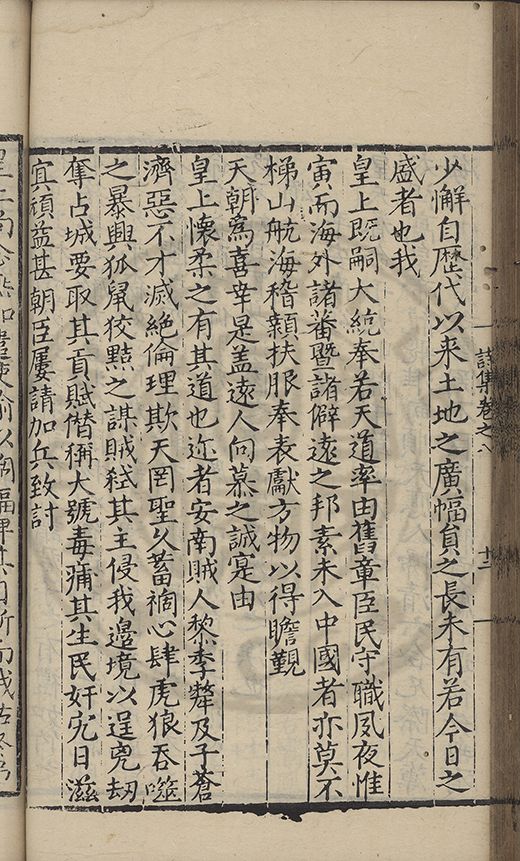 少懈自歴代以来土地之廣幅負之長未有若今日之
盛者也我
皇上既嗣大統奉若天道率由舊章臣民守職夙夜惟
寅而海外諸蕃暨諸僻遠之邦素未入中國者亦莫不
梯山航海稽顙扶服奉表獻方物以得瞻覲
天朝爲喜幸是盖遠人向慕之誠寔由
皇上懷柔之有其道也迩者安南賊人黎季犛及子蒼
濟惡不才滅絶倫理欺天罔聖久蓄禍心肆虎狼吞噬
之暴興狐鼠狡黠之謀賊弒其主侵我邊境以逞兇刼
奪占城要取其貢賦僣稱大號毒痡其生民奸宄日滋
寘頑益甚朝臣屢請加兵致討
詩集卷之八
十二